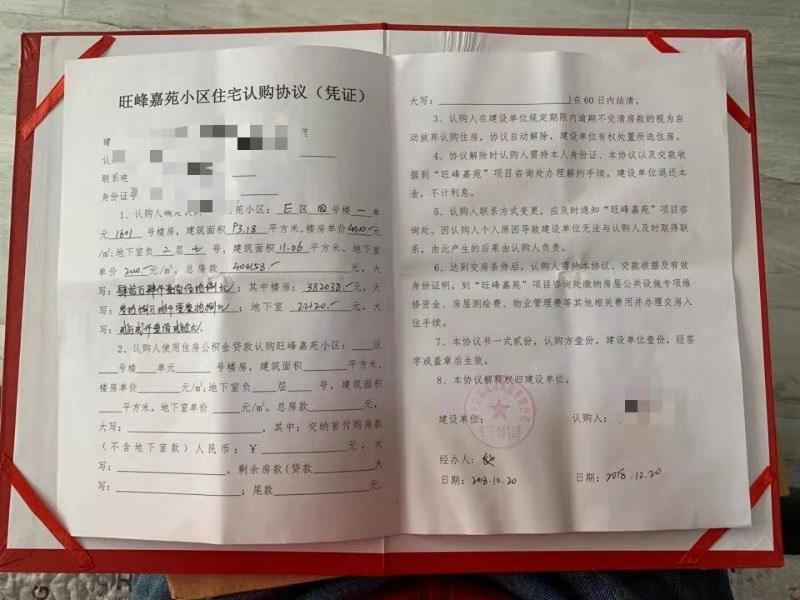 旺峰嘉苑小区住宅认购协议（凭证）
建
认
联系电
身份证号
1、认购人确定认 苑小区：E区 号楼一单
元1601号楼房，建筑面积93.18平方米，楼房单价4100元
/㎡；地下室负二层七号，建筑面积11.06平方米，地下室
单价2000元/㎡。总房款404158.-元，大
写：肆拾万肆仟壹佰伍拾捌元；其中楼房：382038.-元，大
写：叁拾捌万贰仟零叁拾捌元；地下室22120.-元，大
写：贰万贰仟壹佰贰拾元
2、认购人使用住房公积金贷款认购旺峰嘉苑小区：
区
号楼 单元 号楼房，建筑面积 平方米，
楼房单价 元/㎡；地下室负 层 号，建筑面积
平方米，地下室单价 元/㎡。总房款 元，
大写： ，其中：交纳首付购房款
（不含地下室款）人民币：￥ 元，大
写： 。剩余房款（贷款 大
写： ；尾款 元，
大写： ）在60日内结清。
3、认购人在建设单位规定期限内逾期不交清房款的视为自
动放弃认购住房，协议自动解除，建设单位有权处置所选住房。
4、协议解除时认购人需持本人身份证、本协议以及交款收
据到“旺峰嘉苑”项目咨询处办理解约手续。建设单位退还本
金，不计利息。
5、认购人联系方式变更，应及时通知“旺峰嘉苑”项目咨
询处。因认购人个人原因导致建设单位无法与认购人及时取得联
系，由此产生的后果由认购人负责。
6、达到交房条件后，认购人需持本协议、交款收据及有效
身份证明，到“旺峰嘉苑”项目咨询处缴纳房屋公共设施专项维
修资金、房屋测绘费、物业管理费等其他相关费用并办理交房入
住手续。
7、本协议书一式贰份，认购方壹份，建设单位壹份，经签
字或盖章后生效。
8、本协议解释权归建设单位。
建设单位： 认购人：
经办人：
日期：2018.10.20 日期：2018.10.20